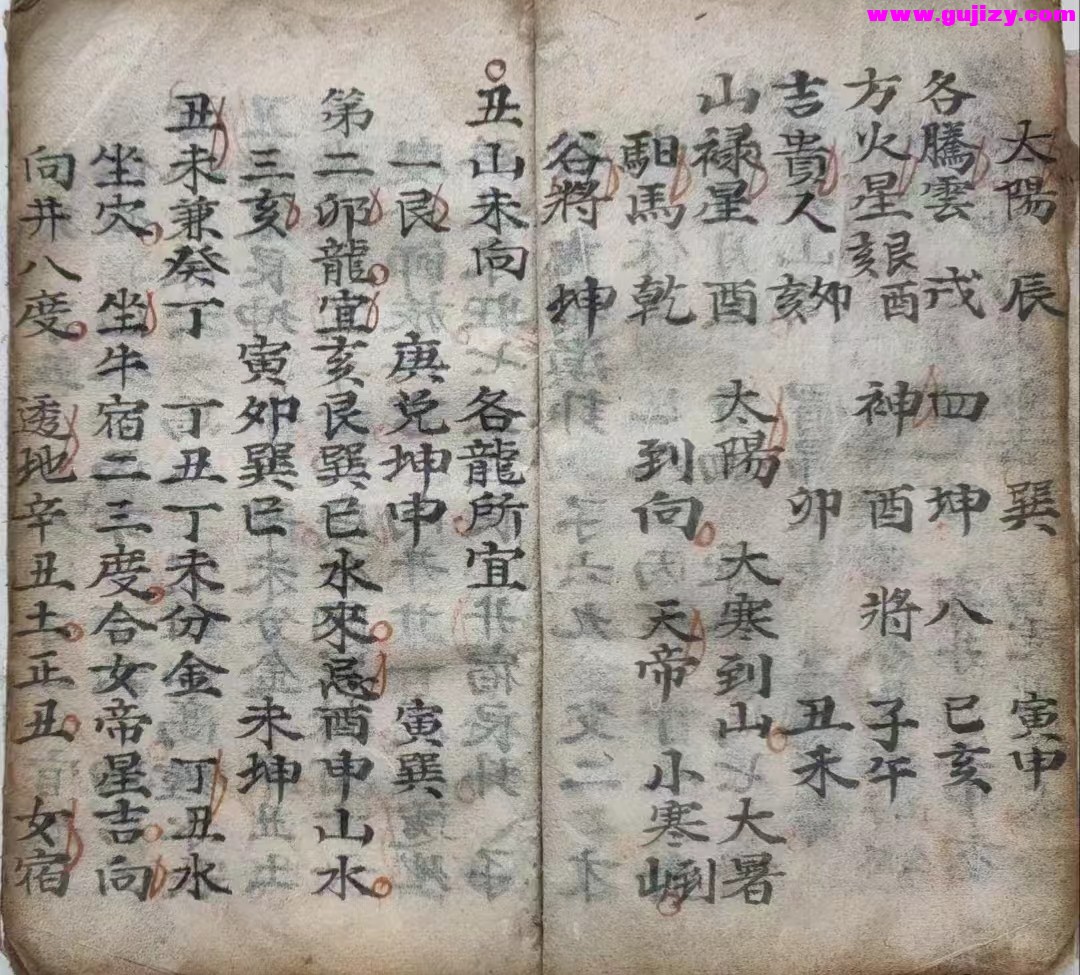 www.gujizy.com
太陽　辰　巽　寅申
各騰雲　戌　四坤　八　巳亥
方火星　艮亥　酉　神　酉　將　子午
吉貴人　亥　卯　卯　丑未
山祿星　酉　太陽　大寒到山　大暑
馹馬　乾　到向　天帝　小寒到山
谷將　坤
丑山未向　各龍所宜
一艮　庚兌坤申　寅巽
第二卯龍宜亥艮巽巳水來忌酉申山水
三亥　寅卯巽巳　未坤
丑未兼癸丁　丁丑丁未分金　丁丑水
坐穴　坐牛宿二三度合女帝星吉向
向井八度　透地辛丑土正丑　女宿